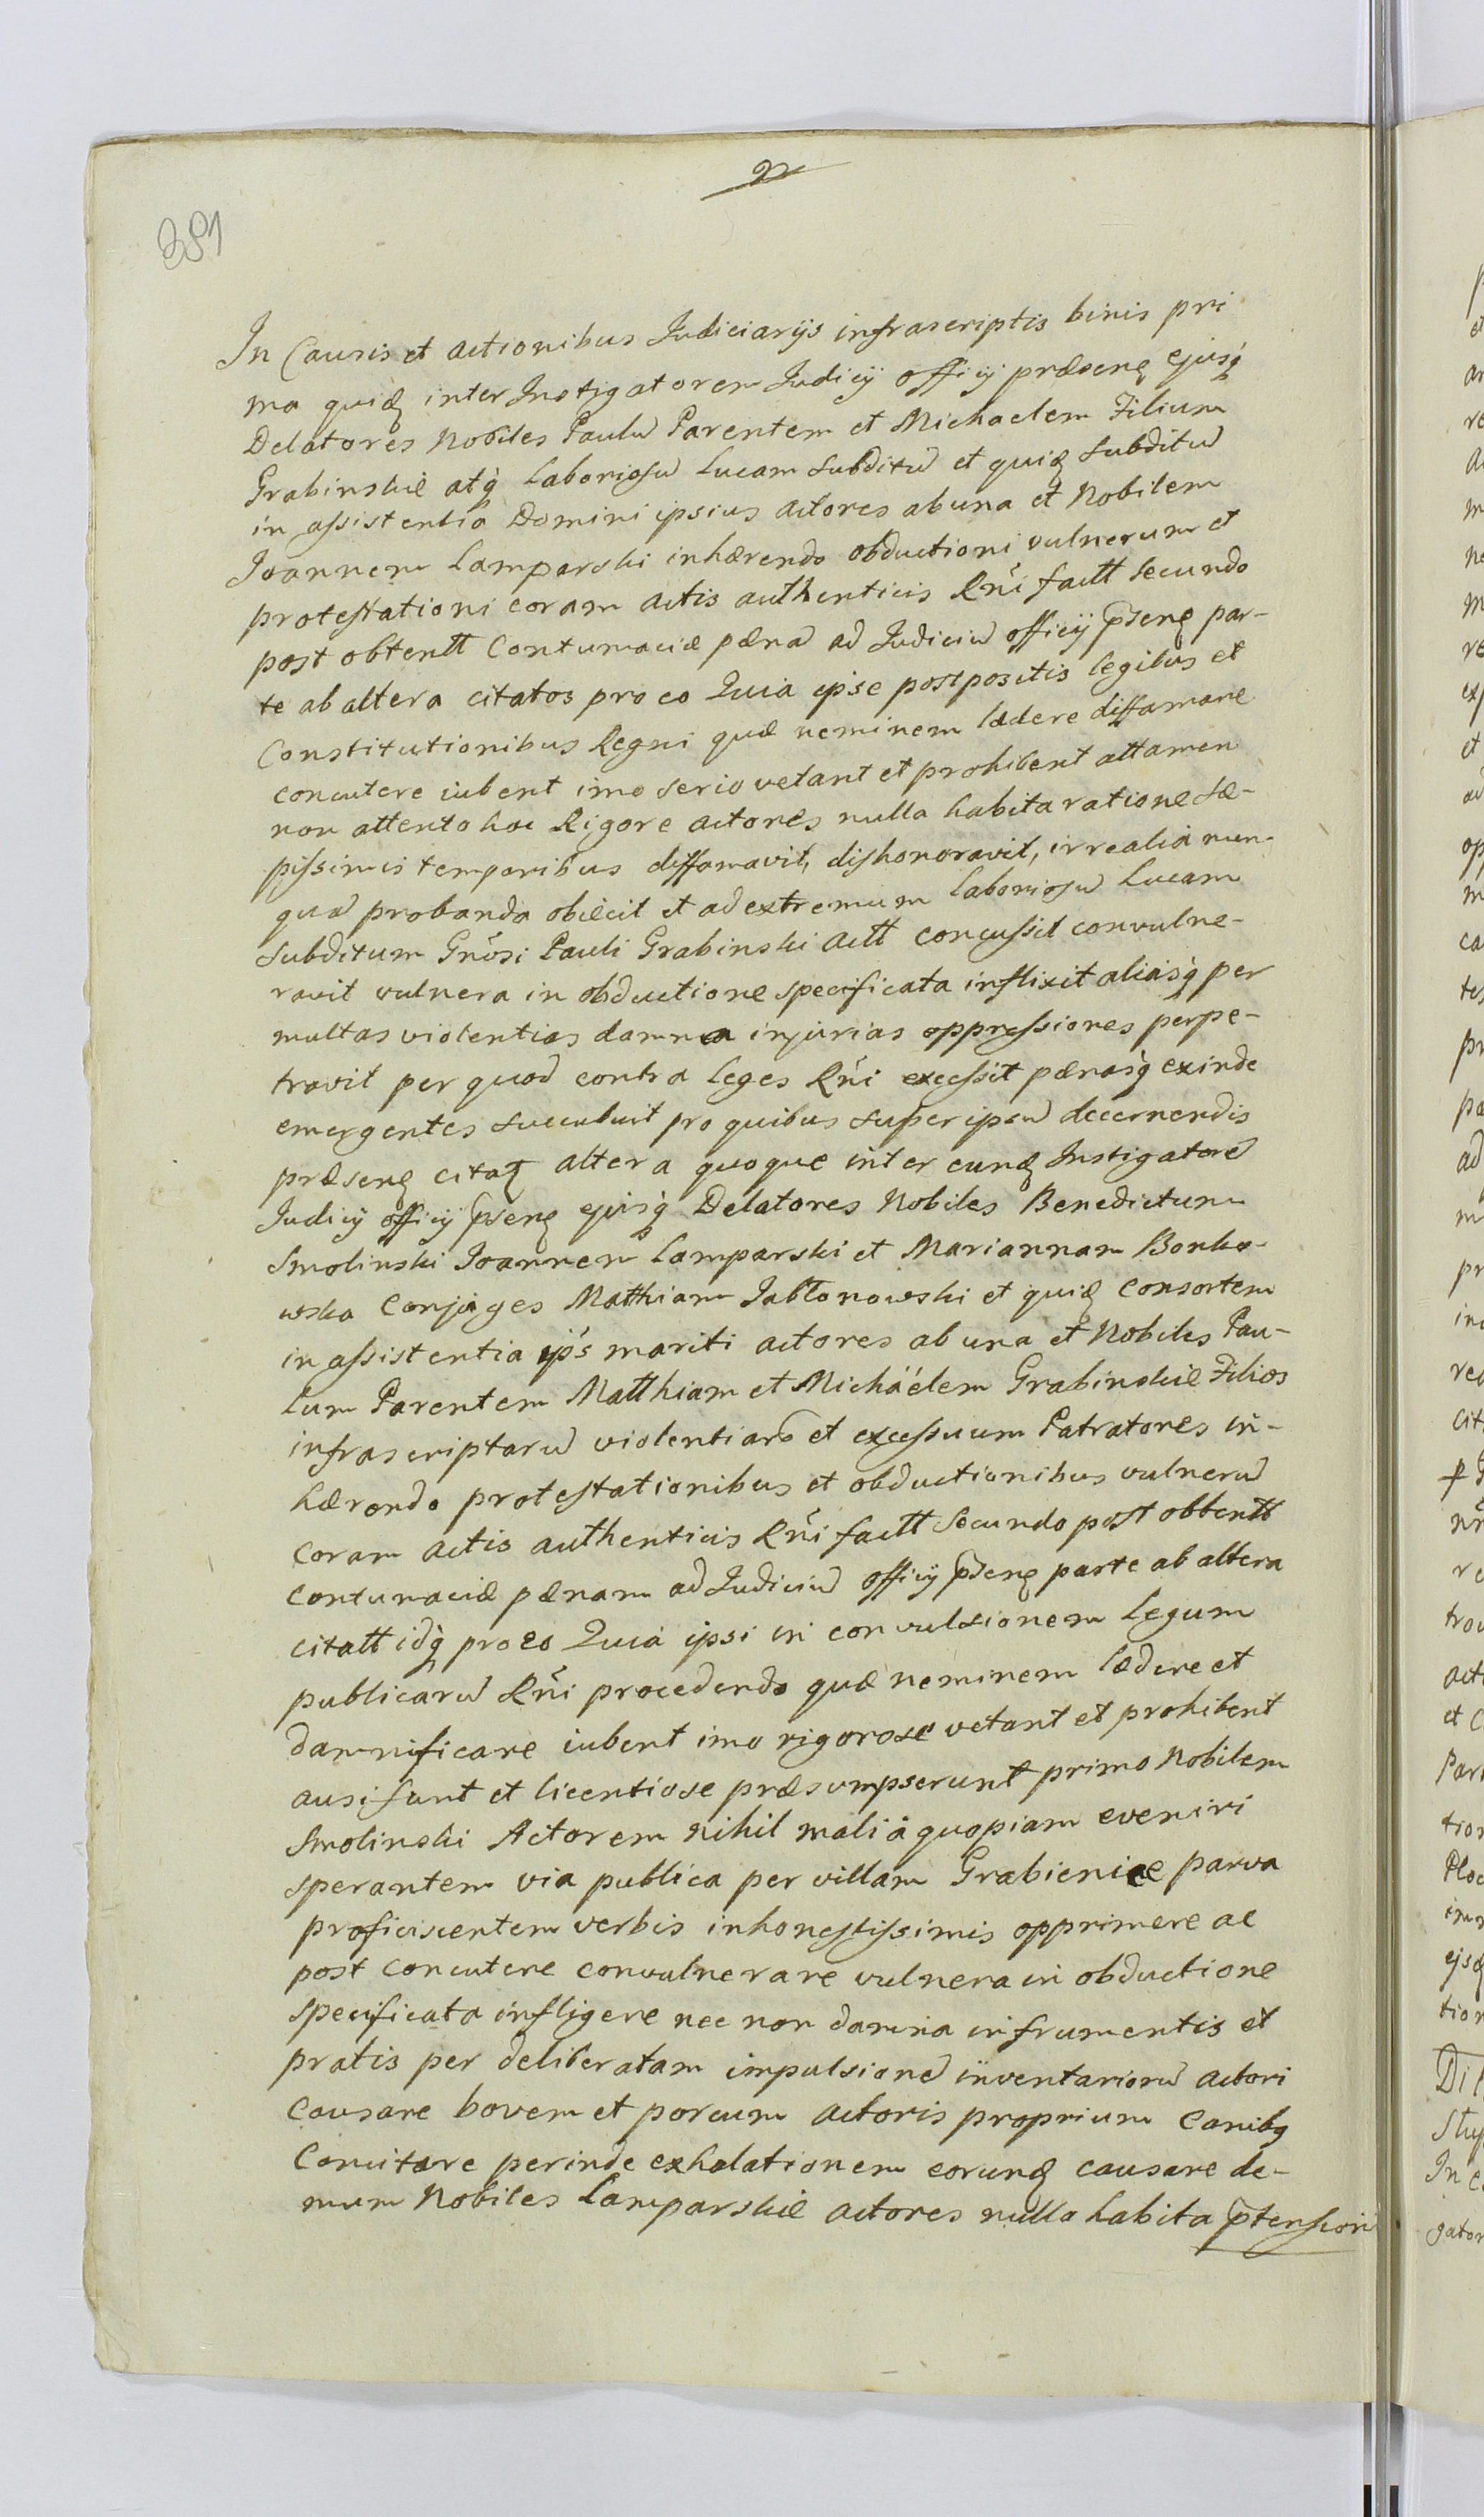 381
In Causis et actionibus Judiciarijs infrascriptis binis pri
ma quidẽ inter Instigatorem Judicij officij præsenẽ ejusq́
Delatores Nobiles Paulũ Parentem et Michaelem Filium
Grabinskie atq́ Laboriosũ Lucam subditũ et quidẽ subditũ
in assistentia Domini ipsius actores ab una et Nobilem
Joannem Lamparski inhærendo obductioni vulnerum et
protestationi coram actis authenticis Rñi factt secundo
post obtentt Contumaciæ pænã ad Judiciũ officij p̃senẽ par-
te ab altera citatos pro eo Quia ipse postpositis legibus et
Constitutionibus Regni quæ neminem lædere diffamare
concutere iubent imo serio vetant et prohibent attamen
non attento hoc Rigore actores nulla habita ratione sæ-
pissimis temporibus diffamavit, dishonoravit, irrealia nun-
quã probanda obiecit et ad extremum Laboriosũ Lucam
subditum Gnősi Pauli Grabinski actt concussit convulne-
ravit vulnera in obductione specificata inflixit aliasq́ per
multas violentias damna injurias oppressiones perpe-
travit per quod contra leges Rñi excessit pænasq́ exinde
emergentes succubuit pro quibus super ipsũ decernendis
præsenẽ citat̃ altera quoque inter eundẽ Instigatorẽ
Judicij officij p̃senẽ ejusq́ Delatores Nobiles Benedictum
Smolinski Joannem Lamparski et Mariannam Bonko-
wska Conjuges Matthiam Jabłonowski et quidẽ consortem
in assistentia ip̃s mariti actores ab una et Nobiles Pau-
lum Parentem Matthiam et Michaélem Grabinskie Filios
infrascriptarũ violentiarũ et excessuum Patratores in-
hærendo protestationibus et obductionibus vulnerũ
coram actis authenticis Rñi factt Secundo post obtentt
contumaciæ pænam ad Judiciũ officij p̃senẽ parte ab altera
citatt idq́ pro eo Quia ipsi in convulsionem Legum
publicarũ Rñi procedendo quæ neminem lædere et
damnificare iubent imo rigorose vetant et prohibent
ausi sunt et licentiose præsumpserunt primo Nobilem
Smolinski Actorem nihil mali à quopiam eveniri
sperantem via publica per villam Grabienice parva
proficiscentem verbis inhonestissimis opprimere ac
post concutere convulnerare vulnera in obductione
specificata infligere nec non damna in frumentis et
pratis per deliberatam impulsionẽ inventariorũ actori
causare bovem et porcum actoris proprium Canibq
Concitare perinde exhalationem eorundẽ causare de-
mum Nobiles Lamparskie actores nulla habita p̃tensioñ